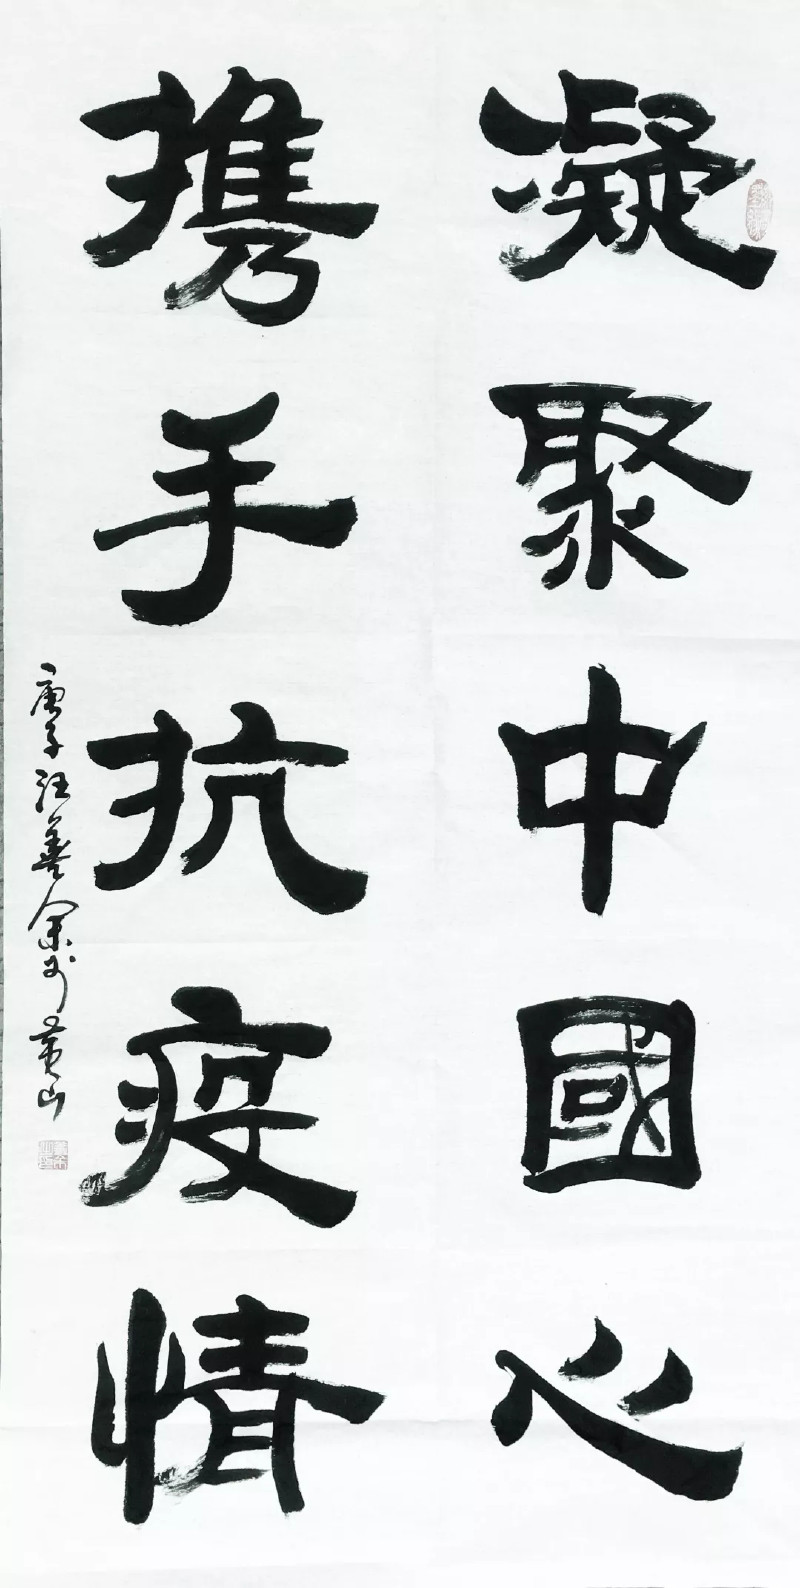 凝聚中國心
携手抗疫情
庚子汪善余於黄山